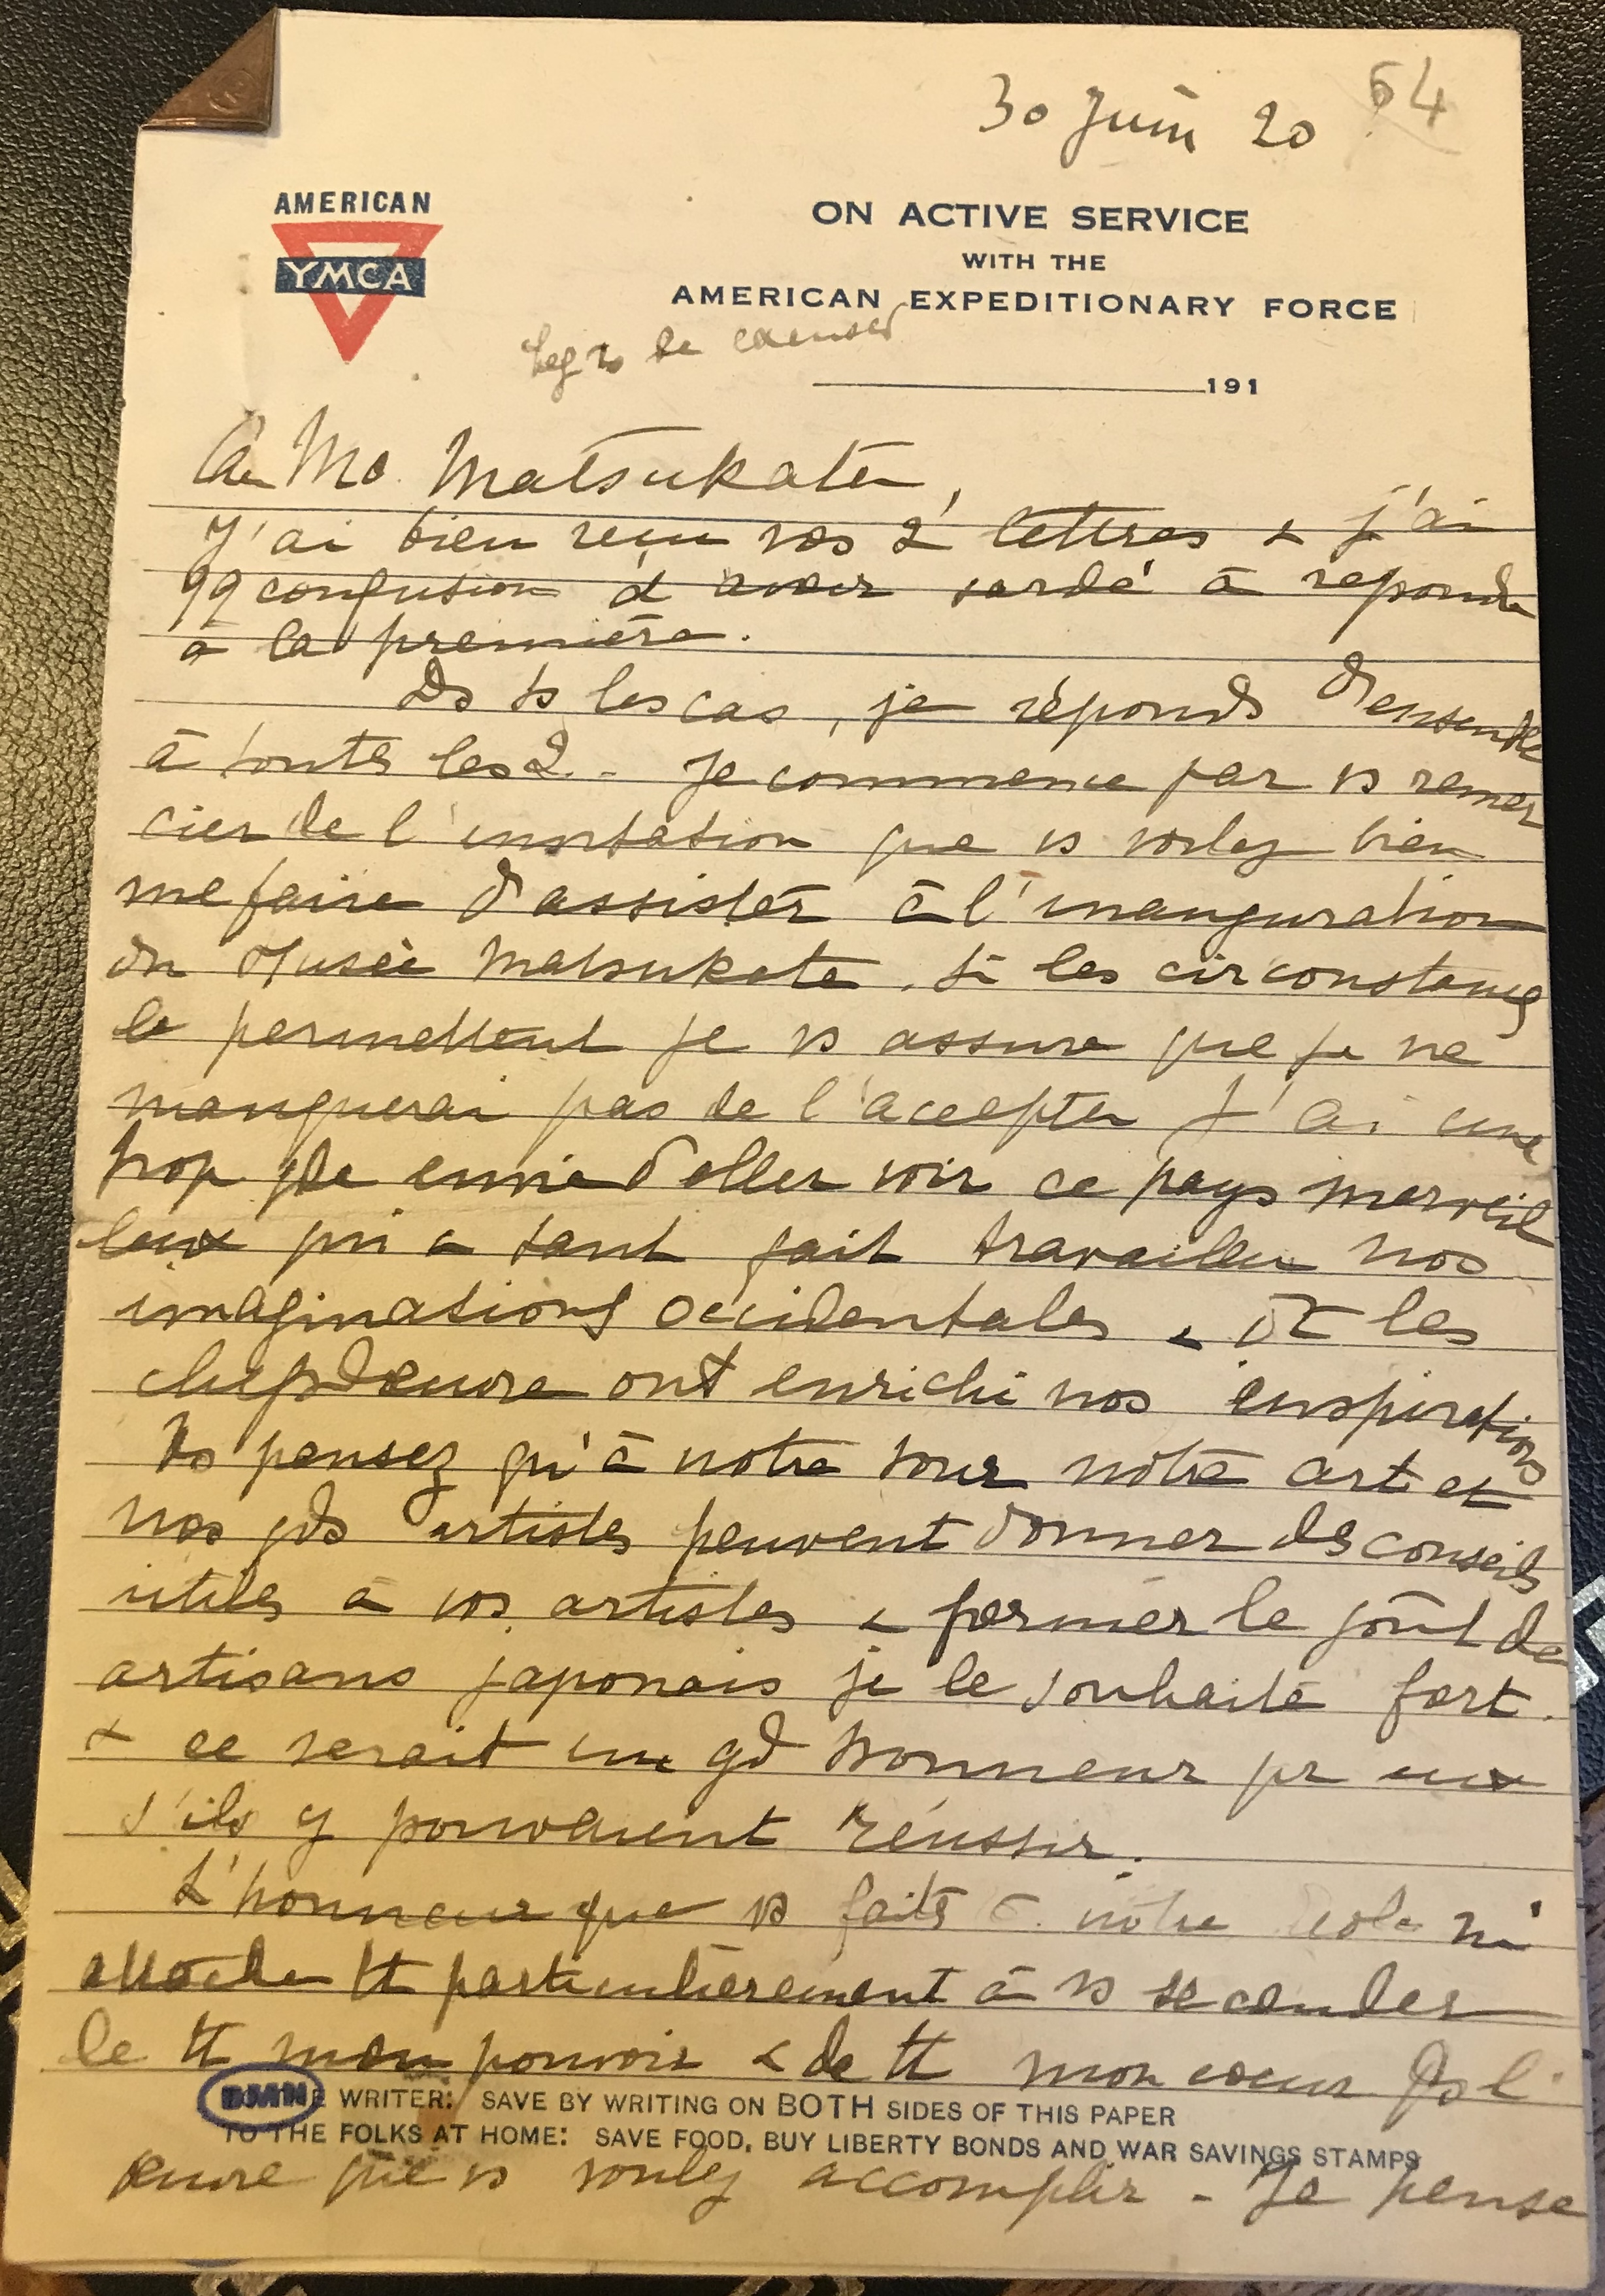 30 Juin 20 64
AMERICAN
YMCA
ON ACTIVE SERVICE
WITH THE
AMERICAN EXPEDITIONARY FORCE
191
Mo. Matsukata,
J'ai bien reçu vos 2 lettres & j'ai
qq confusion d'avoir tardé à répondre
à la première.
Ds ts les cas, je réponds d'ensemble
à toutes les 2. - Je commence par vs remer
cier de l'invitation que vs voulez bien
me faire d'assister à l'inauguration
du Musée Matsukata. Si les circonstances
le permettent je vs assure que je ne
manquerai pas de l'accepter J'ai une
trop gde envie d'aller voir ce pays merveil
leux qui a tant fait travailler nos
imaginations occidentales & dt les
chefs d'œuvre ont enrichi nos inspirations
Vs pensez qu'à notre tour notre art et
nos gds artistes peuvent donner des conseils
utiles à vos artistes & former le goût de
artisans japonais je le souhaite fort.
& ce serait un gd honneur pr eux
s'ils y pouvaient réussir.
L'honneur que vs faites à notre Ecole m'
attache tt particulièrement à vs seconder
de tt mon pouvoir & de tt mon cœur ds l'
E WRITER: SAVE BY WRITING ON BOTH SIDES OF THIS PAPER
TO THE FOLKS AT HOME: SAVE FOOD, BUY LIBERTY BONDS AND WAR SAVINGS STAMPS
œuvre que vs voulez accomplir - Je pense